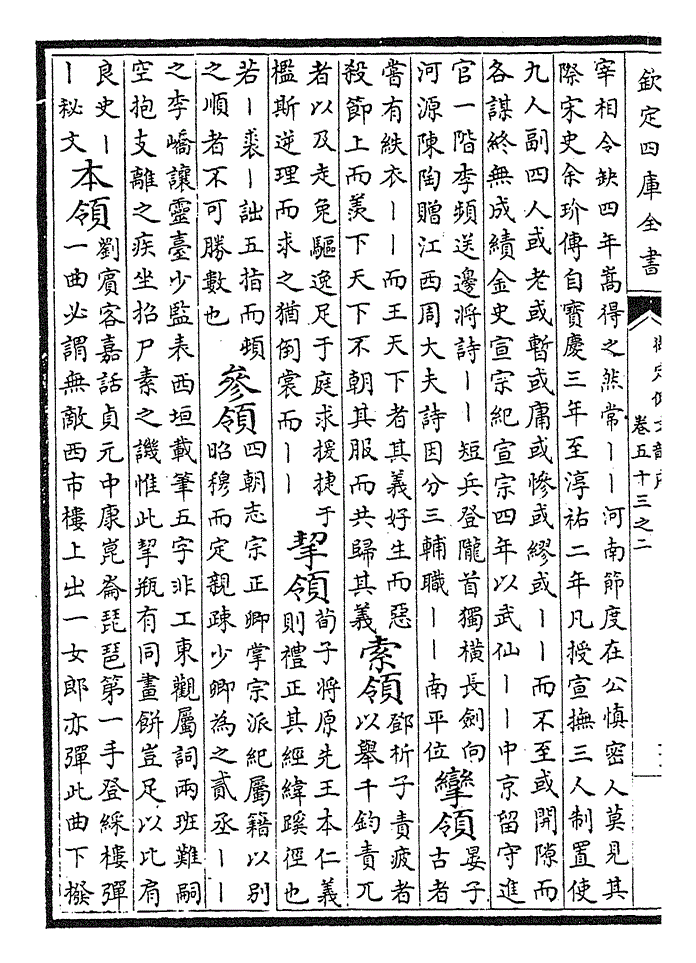 欽定四庫全書
御定佩文韻府
卷五十三之二
宰相令缺四年嵩得之然常丨丨河南節度在公慎密人莫見其
際宋史余玠傳自寶慶三年至淳祐二年凡授宣撫三人制置使
九人副四人或老或暫或庸或慘或繆或丨丨而不至或開隙而
各謀終無成績金史宣宗紀宣宗四年以武仙丨丨中京留守進
官一階李頻送邊將詩丨丨短兵登隴首獨橫長劍向
河源陳陶贈江西周大夫詩因分三輔職丨丨南平位
攣領
晏子
古者
嘗有紩衣丨丨而王天下者其義好生而惡
殺節上而羡下天下不朝其服而共歸其義
索領
鄧析子責疲者
以舉千鈞責兀
者以及走兔驅逸足于庭求援捷于
檻斯逆理而求之猶倒裳而丨丨
挈領
荀子將原先王本仁義
則禮正其經緯蹊徑也
若丨裘丨詘五指而頓
之順者不可勝數也
參領
四朝志宗正卿掌宗派紀屬籍以別
昭穆而定親疎少卿為之貳丞丨丨
之李嶠讓靈臺少監表西垣載筆五字非工東觀屬詞兩班難嗣
空抱支離之疾坐招尸素之譏惟此挈瓶有同畫餅豈足以比肩
良史丨
丨秘文
本領
劉賓客嘉話貞元中康崑崙琵琶第一手登綵樓彈
一曲必謂無敵西市樓上出一女郎亦彈此曲下撥